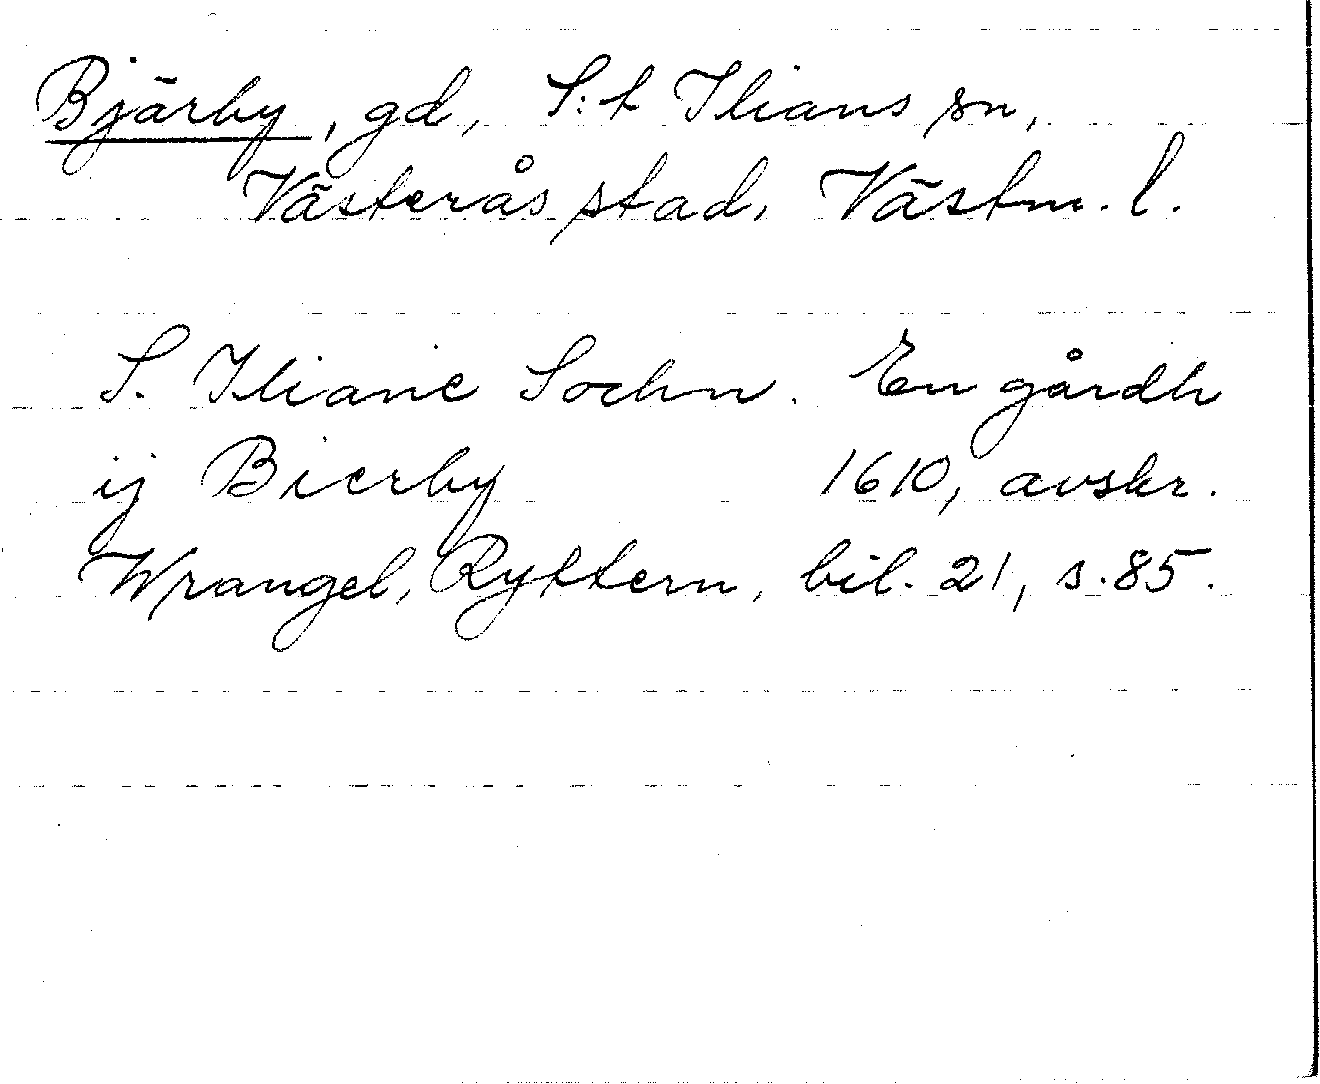 Bjärby, gd, S:t Ilians sn,
Västerås stad, Västm. l.
S. Iliane Sochn. En gårdh
ij Bierby 1610, avskr.
Wrangel, Ryttern, bil. 21, s. 85.